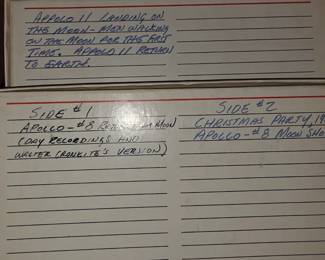 APPOLO 11 LANDING ON
THE MOON - MEN WALKING
ON THE MOON FOR THE FRIST
TIME. APPOLO 11 RETURN
TO EARTH.
SIDE #1
APOLLO - #8 MOON
(DAY RECORDINGS AND
WALTER CRONKITE'S VERSION)
SIDE #2
CHRISTMAS PARTY, 19
APOLLO - #8 MOON SHO